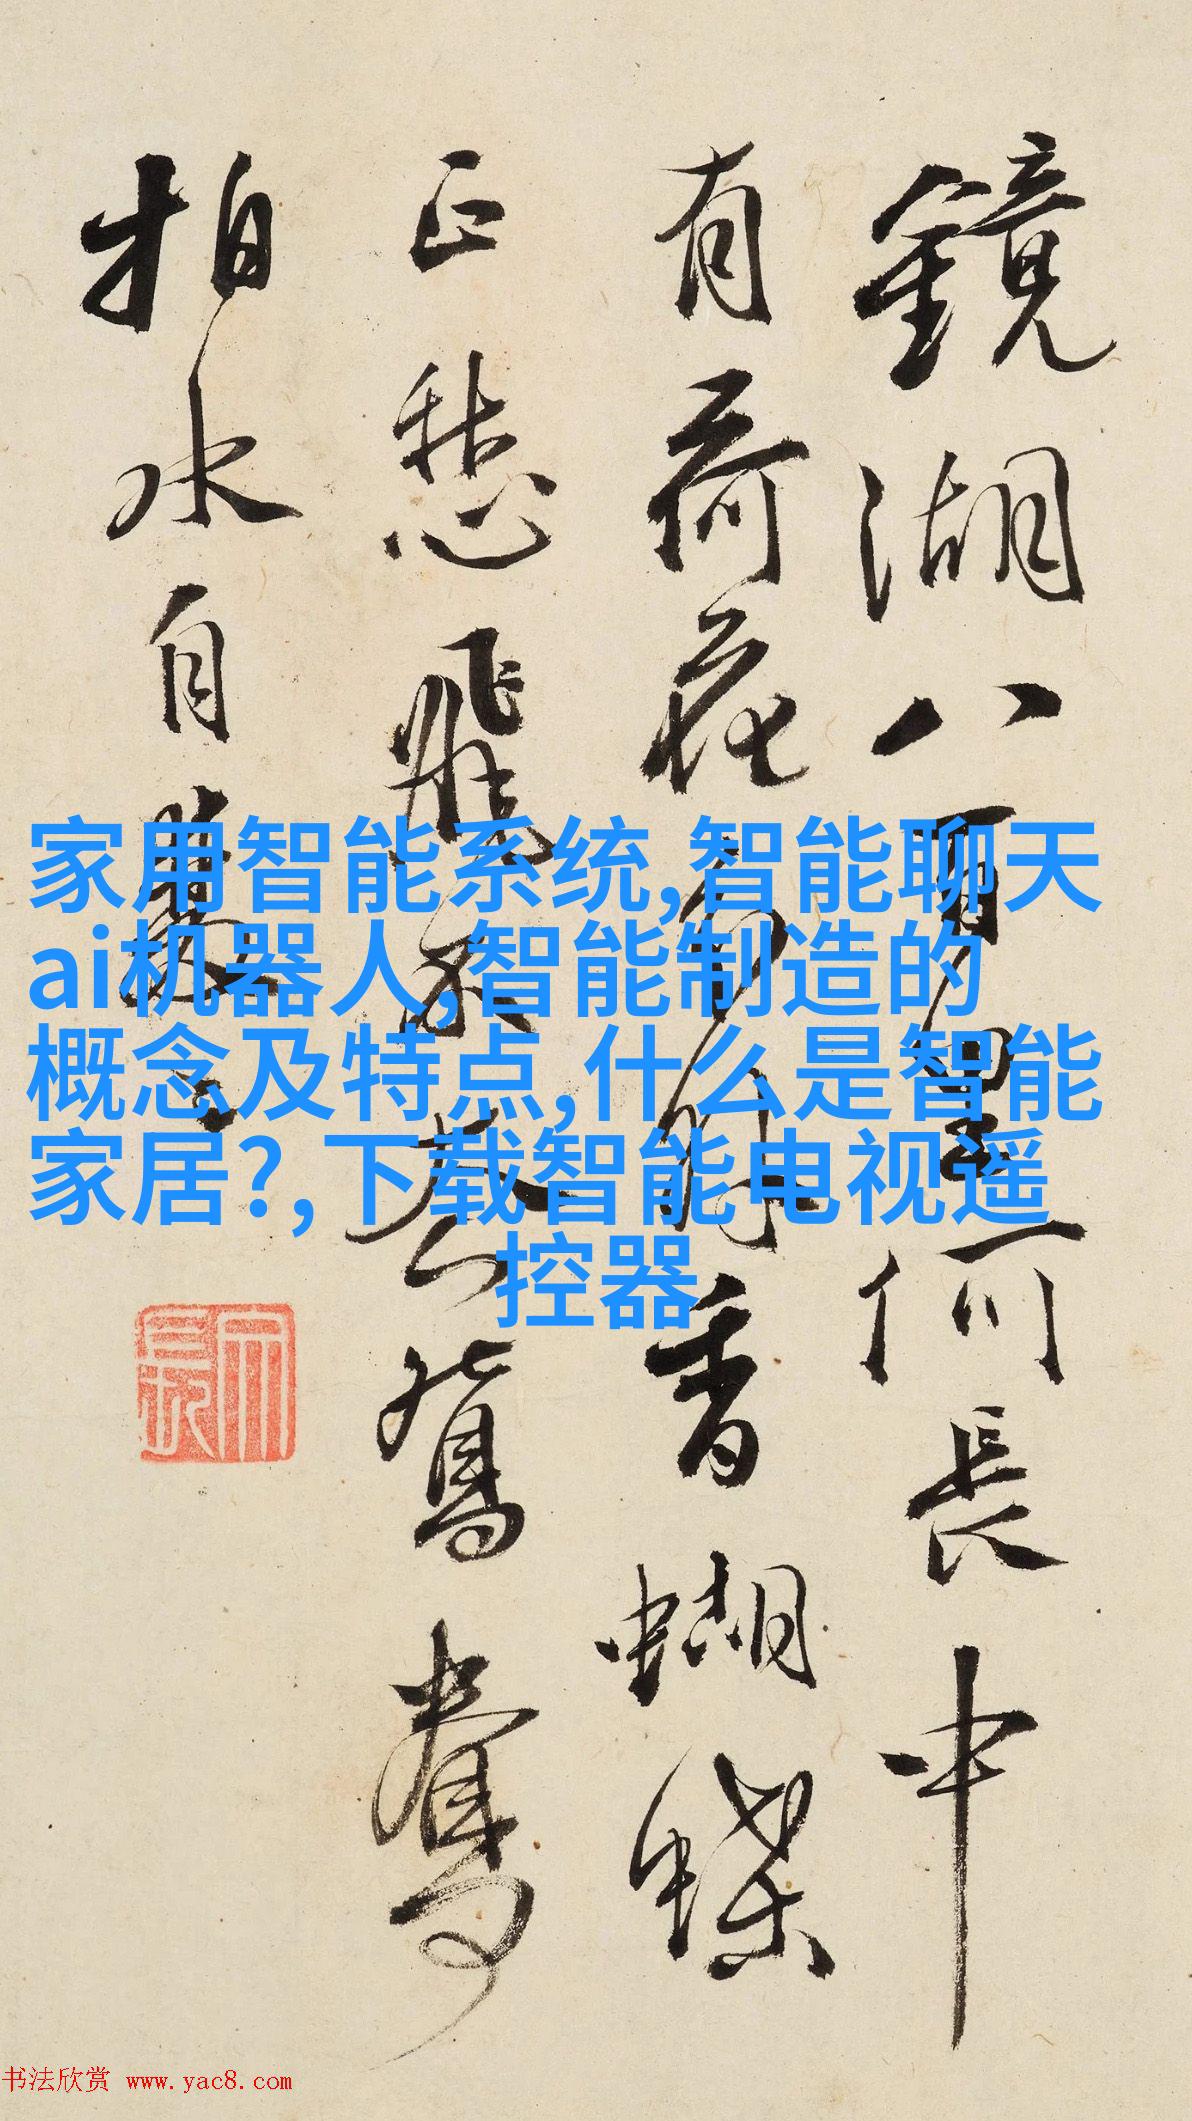 鏡湖八百里何長中
有荷花分外香蝴蝶
正愁飛不去鴛鴦
拍水自雙
家用智能系统,智能聊天
ai机器人,智能制造的
概念及特点,什么是智能
家居?,下载智能电视遥
控器
书法欣赏 www.yac8.com